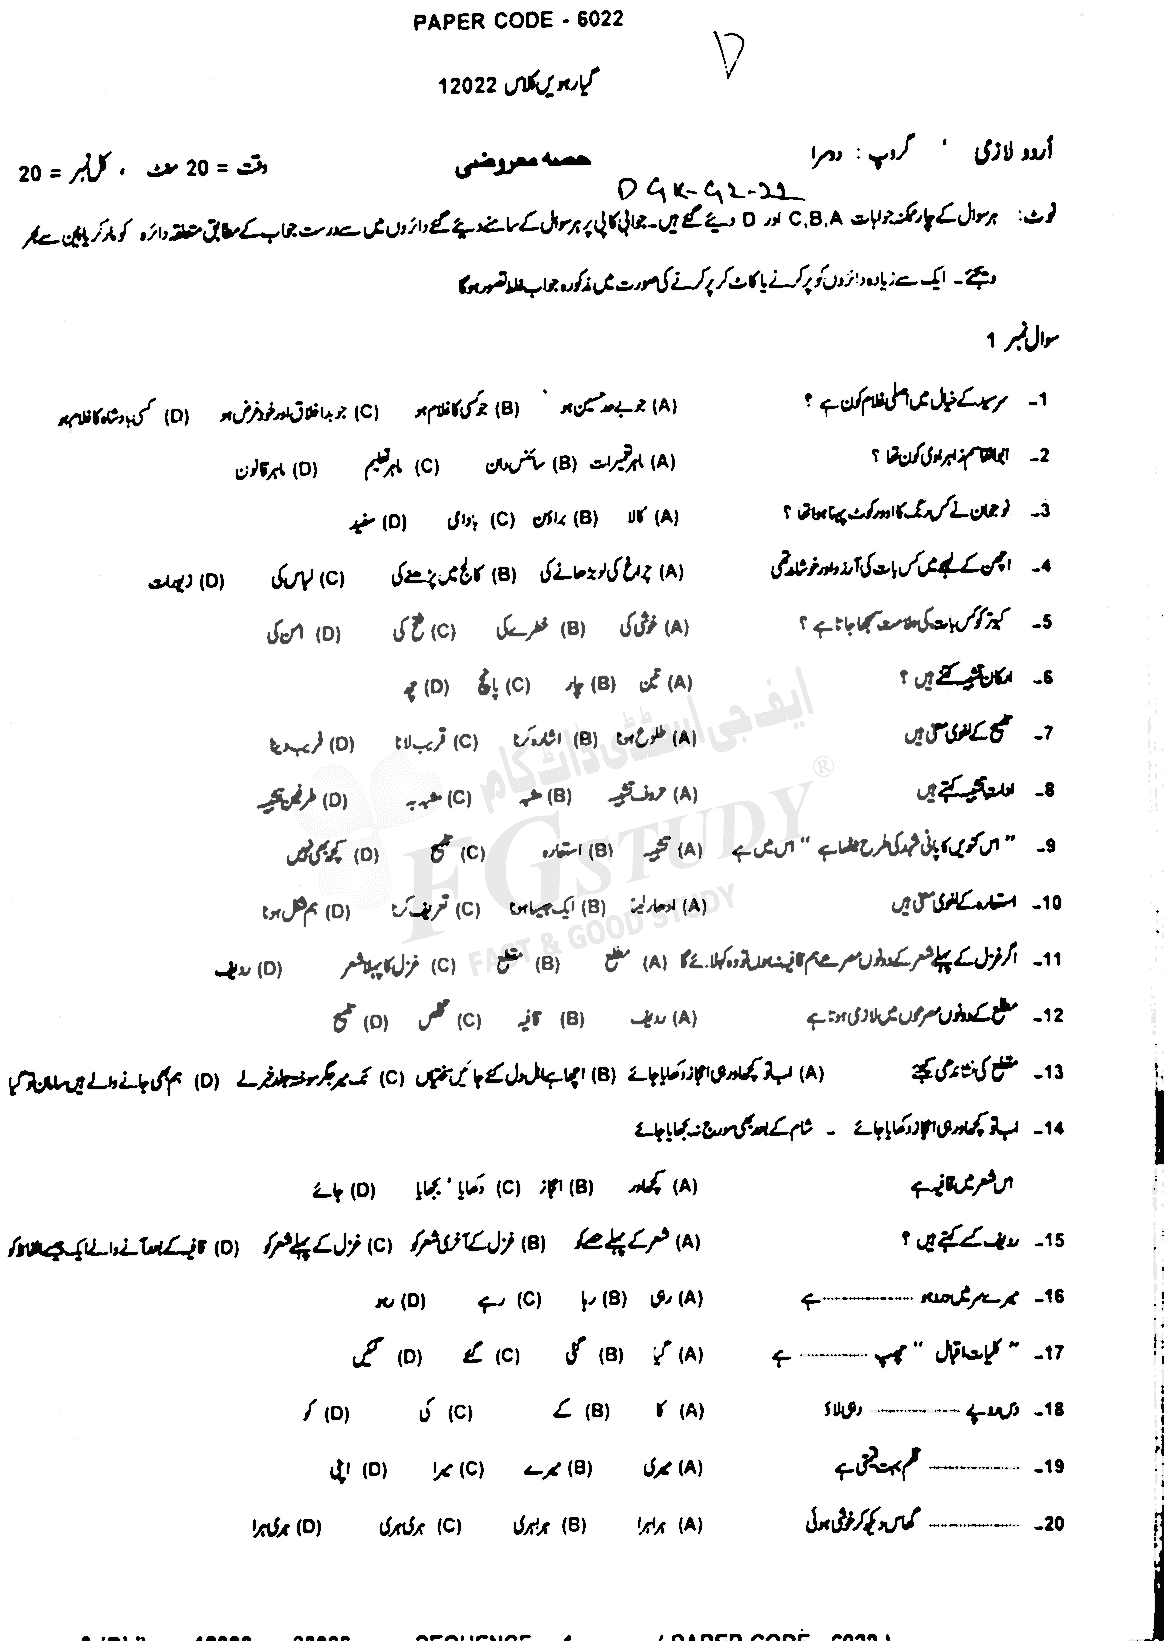 PAPER CODE - 6022
D
گیارہویں کلاس 12022
اُردو لازمی ' گروپ : دوسرا حصہ معروضی وقت = 20 منٹ ، کل نمبر = 20
DGK-G2-22
نوٹ: ہر سوال کے چار ممکنہ جوابات C,B,A اور D دیئے گئے ہیں۔ جوابی کاپی پر ہر سوال کے سامنے دیئے گئے دائروں میں سے درست جواب کے مطابق متعلقہ دائرہ کو مارکر یا پین سے بھر
دیجئے۔ ایک سے زیادہ دائروں کو پر کرنے یا کاٹ کر پر کرنے کی صورت میں مذکورہ جواب غلط تصور ہوگا
سوال نمبر 1
1- سرسید کے خیال میں اصلی غلام کون ہے ؟ (A) جو بے حد حسین ہو (B) جو کسی کا غلام ہو (C) جو بداخلاق اور خود غرض ہو (D) کسی بادشاہ کا غلام ہو
2- ابوالقاسم زہراوی کون تھا ؟ (A) ماہر تعمیرات (B) سائنس دان (C) ماہر تعلیم (D) ماہر قانون
3- نوجوان نے کس رنگ کا اوورکوٹ پہنا ہوا تھا ؟ (A) کالا (B) براؤن (C) بادامی (D) سفید
4- اچھن کے لہجے میں کس بات کی آرزو اور خوشامد تھی (A) چراغ کی لو بڑھانے کی (B) کالج میں پڑھنے کی (C) لباس کی (D) زیورات
5- کبوتر کو کس بات کی علامت سمجھا جاتا ہے ؟ (A) خوشی کی (B) خطرے کی (C) فتح کی (D) امن کی
6- ارکان تشبیہ کتنے ہیں ؟ (A) تین (B) چار (C) پانچ (D) چھ
7- تلمیح کے لغوی معنی ہیں (A) طلوع ہونا (B) اشارہ کرنا (C) قریب لانا (D) فریب دینا
8- ادات تشبیہ کہتے ہیں (A) حروف تشبیہ (B) مشبہ (C) مشبہ بہ (D) طرفین تشبیہ
9- " اس کنویں کا پانی شہد کی طرح میٹھا ہے " اس میں ہے (A) تشبیہ (B) استعارہ (C) تلمیح (D) کچھ بھی نہیں
10- استعارہ کے لغوی معنی ہیں (A) ادھار لینا (B) ایک جیسا ہونا (C) تعریف کرنا (D) ہم شکل ہونا
11- اگر غزل کے پہلے شعر کے دونوں مصرعے ہم قافیہ ہوں تو وہ کہلائے گا (A) مطلع (B) مقطع (C) غزل کا پہلا شعر (D) ردیف
12- مطلع کے دونوں مصرعوں میں لازمی ہوتا ہے (A) ردیف (B) قافیہ (C) تخلص (D) تلمیح
13- مقطع کی نشاندہی کیجئے (A) اب تو کچھ اور ہی اعجاز دکھایا جائے (B) اچھا ہے اہل دل کئے جائیں سختیاں (C) ٹک میر جگر سوختہ جلد خبر لے (D) ہم بھی جانے والے ہیں سامان تو گیا
14- اب تو کچھ اور ہی اعجاز دکھایا جائے - شام کے بعد بھی سورج نہ بجھایا جائے
اس شعر میں قافیہ ہے (A) کچھ اور (B) اعجاز (C) دکھایا ' بجھایا (D) جائے
15- ردیف کسے کہتے ہیں ؟ (A) شعر کے پہلے حصے کو (B) غزل کے آخری شعر کو (C) غزل کے پہلے شعر کو (D) قافیہ کے بعد آنے والے ایک جیسے الفاظ کو
16- میرے سر میں درد ہو ---------- ہے (A) رہی (B) رہا (C) رہے (D) رہو
17- " کلیات اقبال " چھپ ---------- ہے (A) گیا (B) گئی (C) گئے (D) گئیں
18- دس روپے ---------- دہی لاؤ (A) کا (B) کے (C) کی (D) کو
19- ---------- قلم بہت قیمتی ہے (A) میری (B) میرے (C) میرا (D) اپنی
20- ---------- گھاس دیکھ کر خوشی ہوئی (A) ہرا ہرا (B) ہرا ہری (C) ہری ہری (D) ہری ہرا
ایف جی اسٹڈی ڈاٹ کام
FGSTUDY®
FAST & GOOD STUDY
SEQUENCE - 1 ( PAPER CODE - 6022 )